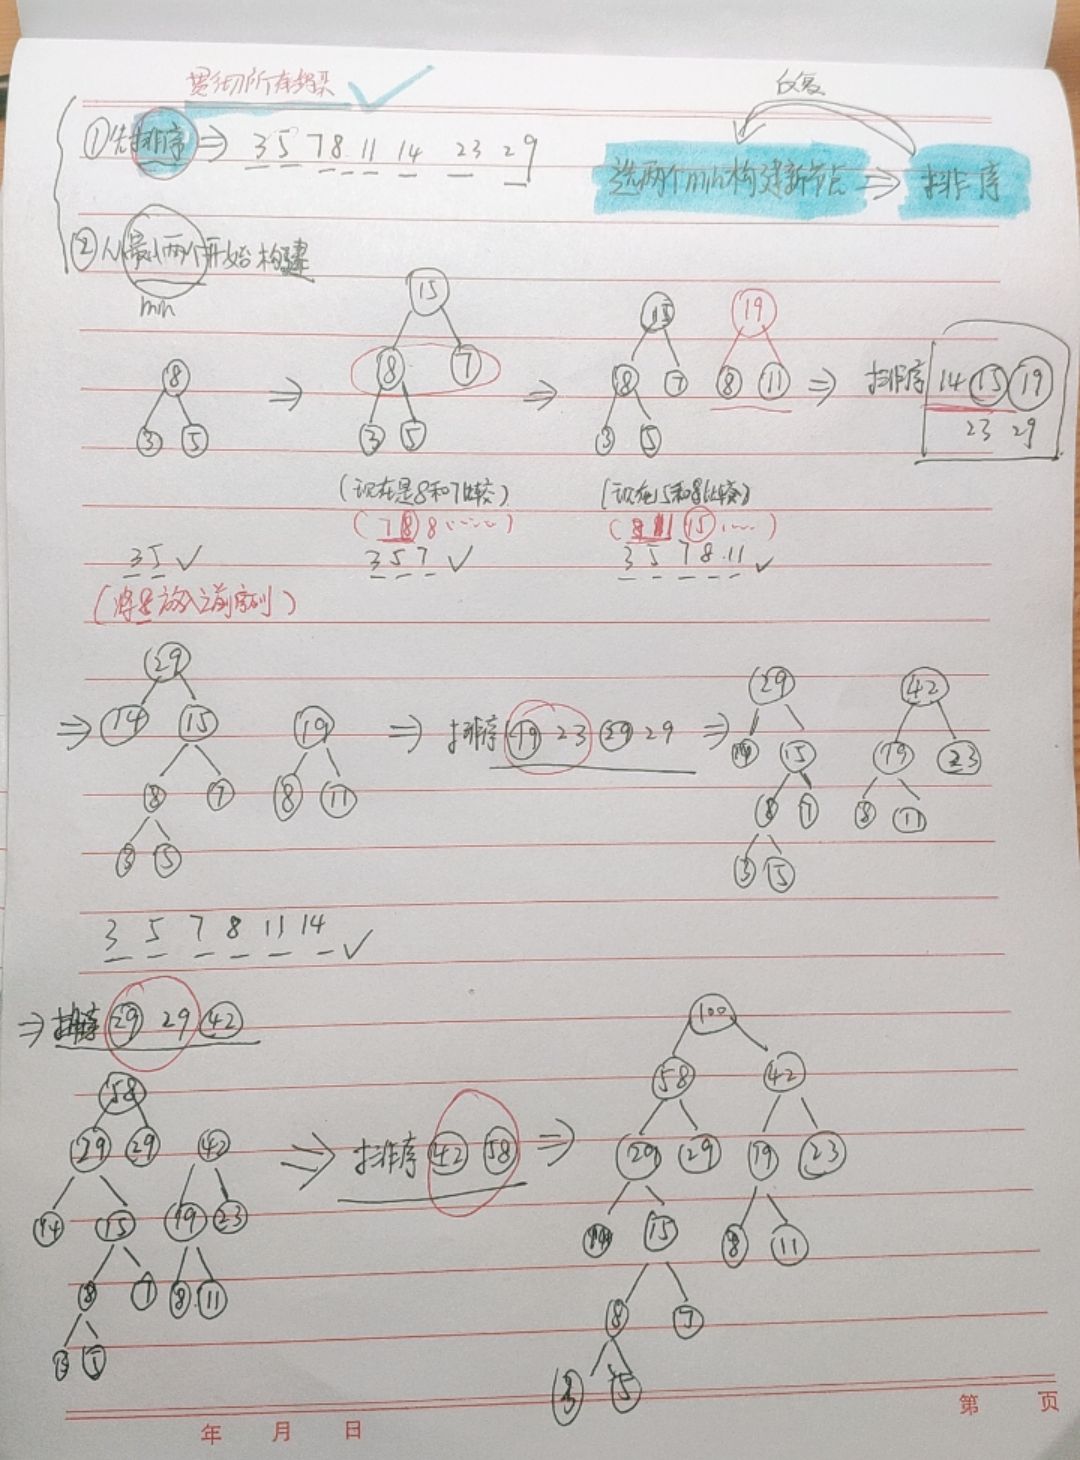 贯彻所有步骤
反复
①先排序⇒ 3 5 7 8 11 14 23 29
选两个min构建新节点⇒排序
②从最小两个开始构建
min
15
15 19
8
8 7
8 7 8 11
⇒ ⇒ ⇒ 排序 14 15 19
23 29
3 5
3 5
3 5
(现在是8和7比较)
(现在15和8比较)
(7 8 8……)
(8 11 15……)
3 5 ✓
3 5 7 ✓
3 5 7 8 11 ✓
(将8放入之前序列)
29
29 42
⇒ 14 15 19 ⇒ 排序 19 23 29 29 ⇒ 14 15 19 23
8 7 8 11
8 7 8 11
3 5
3 5
3 5 7 8 11 14 ✓
⇒排序 29 29 42
58
29 29 42
14 15 19 23
8 7 8 11
3 5
⇒ 排序 42 58 ⇒
100
58 42
29 29 19 23
14 15 8 11
8 7
3 5
年 月 日
第 页